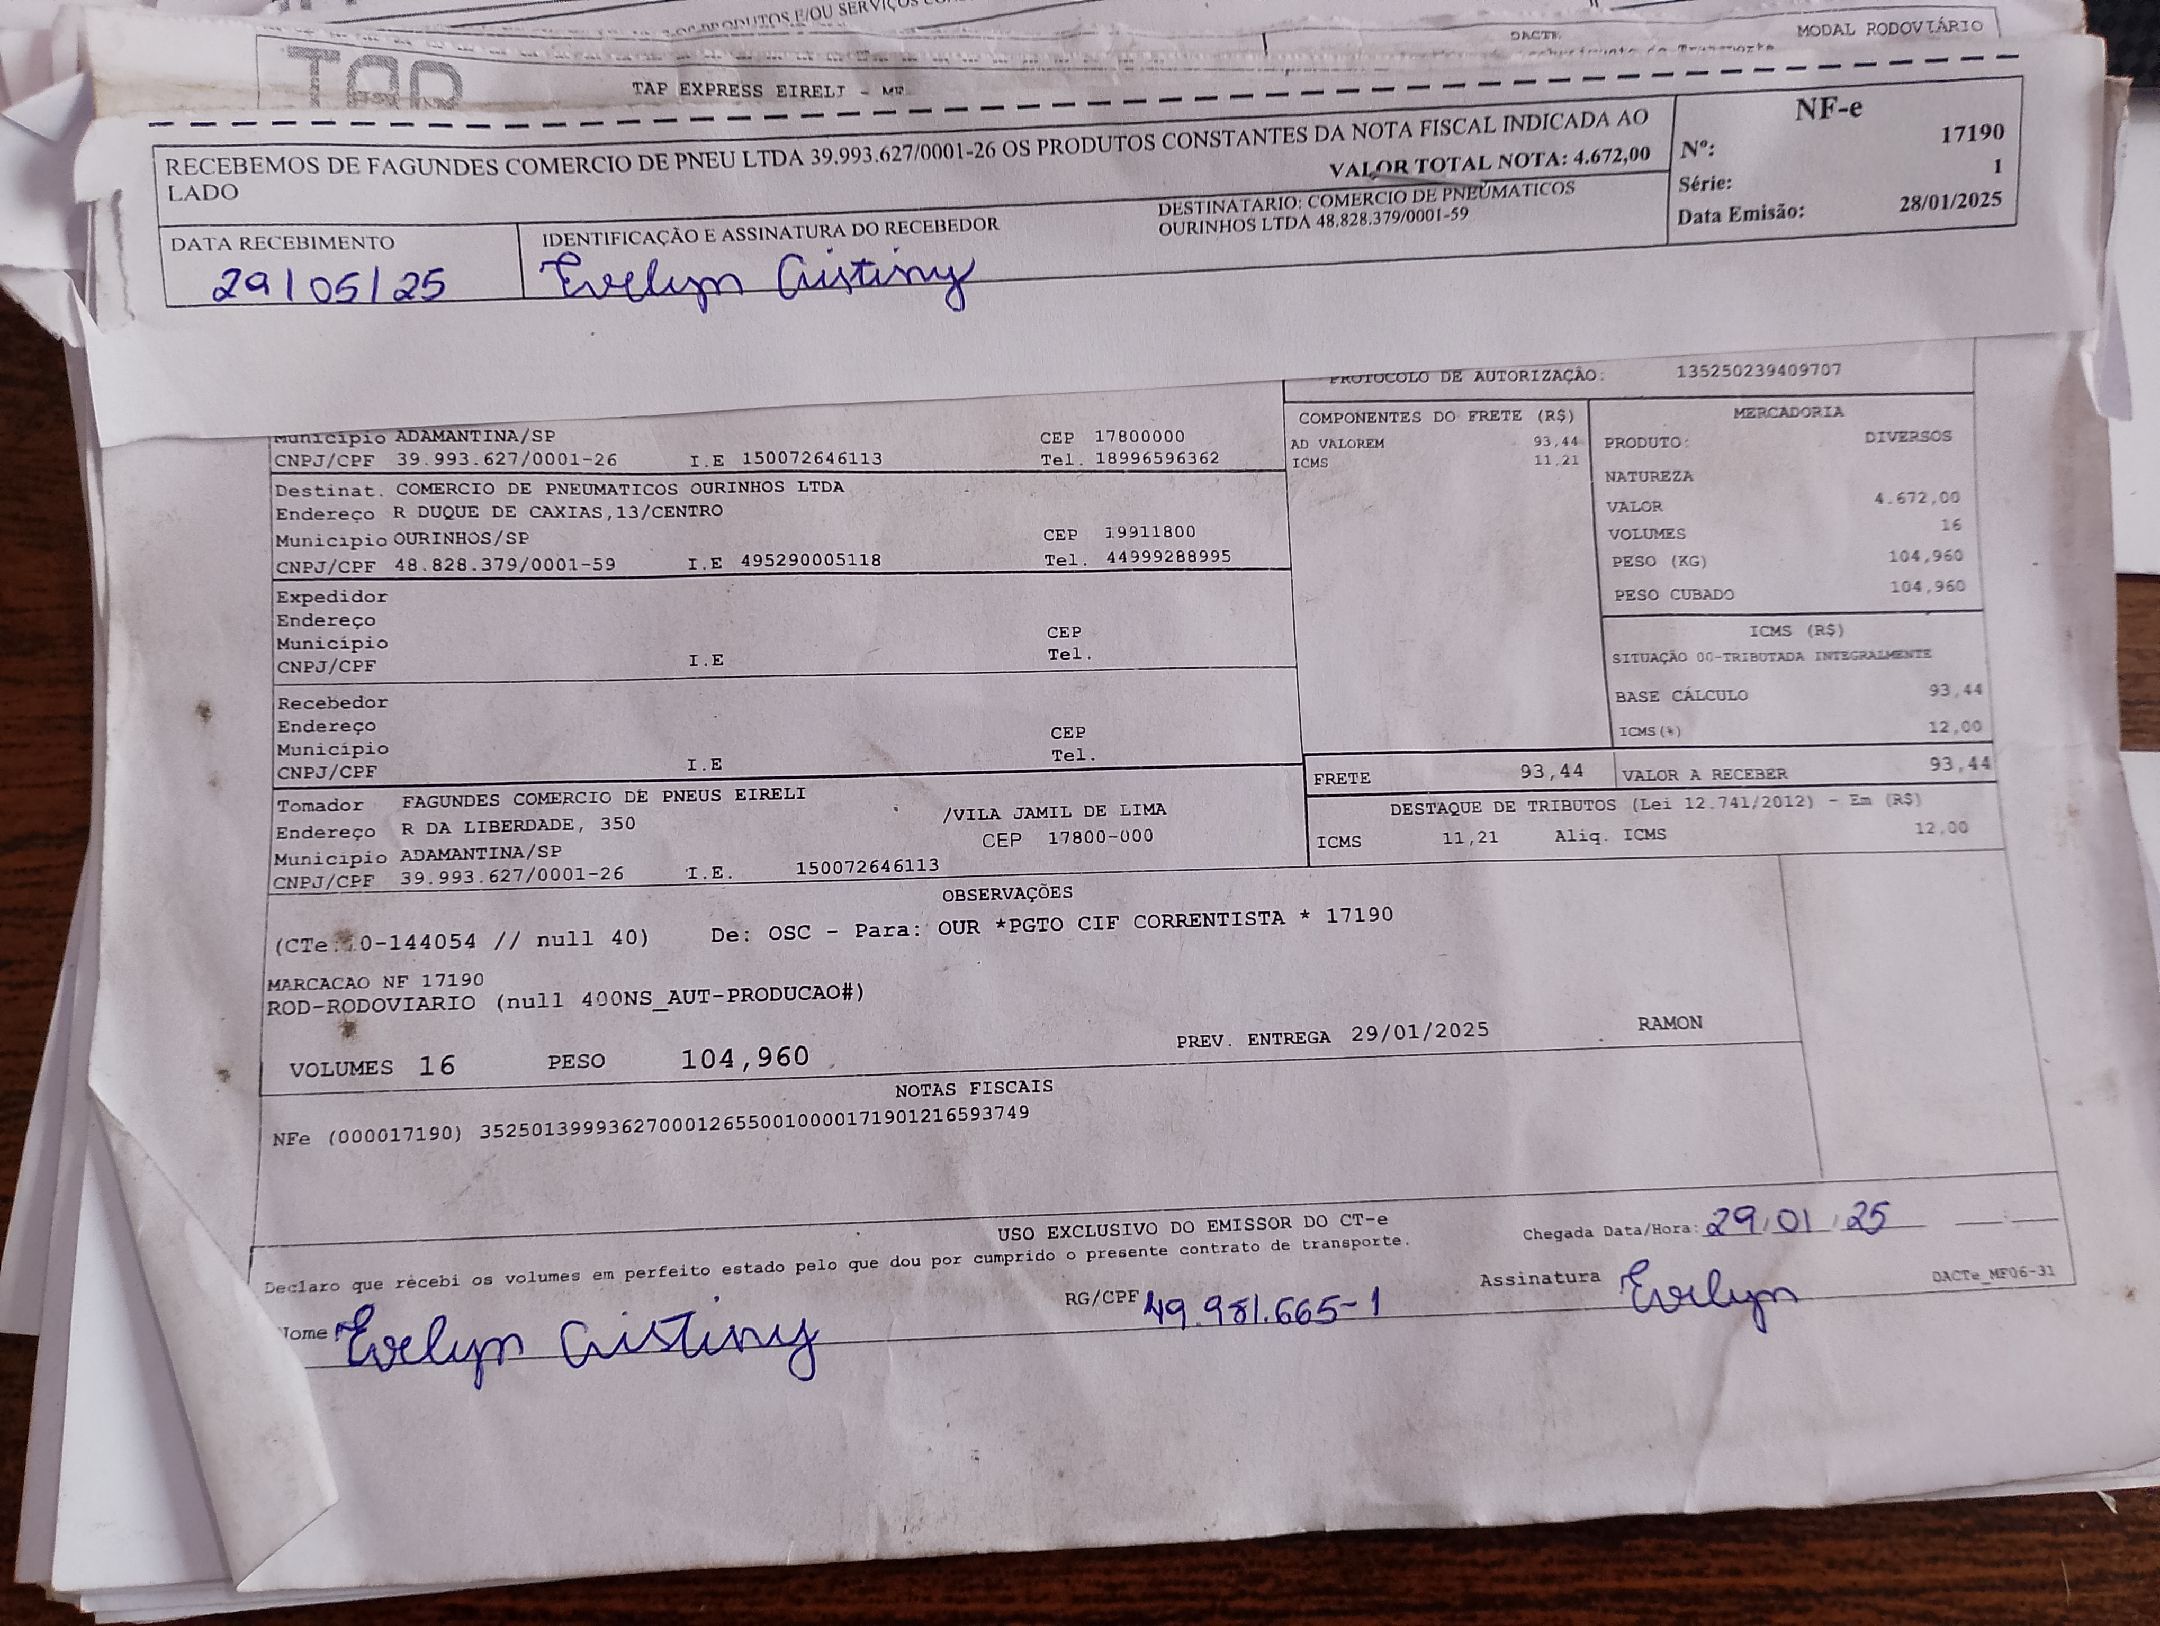 PRODUTOS E/OU SERVIÇOS
DACTE
MODAL RODOVIÁRIO
TAP
TAP EXPRESS EIRELI - ME
RECEBEMOS DE FAGUNDES COMERCIO DE PNEU LTDA 39.993.627/0001-26 OS PRODUTOS CONSTANTES DA NOTA FISCAL INDICADA AO
LADO
VALOR TOTAL NOTA: 4.672,00
NF-e
Nº: 17190
Série: 1
Data Emisão: 28/01/2025
DATA RECEBIMENTO
29/05/25
IDENTIFICAÇÃO E ASSINATURA DO RECEBEDOR
Evelyn Cristiny
DESTINATARIO: COMERCIO DE PNEUMATICOS
OURINHOS LTDA 48.828.379/0001-59
PROTOCOLO DE AUTORIZAÇÃO: 135250239409707
Município ADAMANTINA/SP CEP 17800000
CNPJ/CPF 39.993.627/0001-26 I.E 150072646113 Tel. 18996596362
Destinat. COMERCIO DE PNEUMATICOS OURINHOS LTDA
Endereço R DUQUE DE CAXIAS,13/CENTRO
Município OURINHOS/SP CEP 19911800
CNPJ/CPF 48.828.379/0001-59 I.E 495290005118 Tel. 44999288995
Expedidor
Endereço
Município CEP
CNPJ/CPF I.E Tel.
Recebedor
Endereço
Município CEP
CNPJ/CPF I.E Tel.
Tomador FAGUNDES COMERCIO DE PNEUS EIRELI
Endereço R DA LIBERDADE, 350 /VILA JAMIL DE LIMA
Município ADAMANTINA/SP CEP 17800-000
CNPJ/CPF 39.993.627/0001-26 I.E. 150072646113
COMPONENTES DO FRETE (R$)
AD VALOREM 93,44
ICMS 11,21
MERCADORIA
PRODUTO: DIVERSOS
NATUREZA
VALOR 4.672,00
VOLUMES 16
PESO (KG) 104,960
PESO CUBADO 104,960
ICMS (R$)
SITUAÇÃO 00-TRIBUTADA INTEGRALMENTE
BASE CÁLCULO 93,44
ICMS(%) 12,00
FRETE 93,44 VALOR A RECEBER 93,44
DESTAQUE DE TRIBUTOS (Lei 12.741/2012) - Em (R$)
ICMS 11,21 Aliq. ICMS 12,00
OBSERVAÇÕES
(CTe: 0-144054 // null 40) De: OSC - Para: OUR *PGTO CIF CORRENTISTA * 17190
MARCACAO NF 17190
ROD-RODOVIARIO (null 400NS_AUT-PRODUCAO#)
VOLUMES 16 PESO 104,960 PREV. ENTREGA 29/01/2025 RAMON
NOTAS FISCAIS
NFe (000017190) 35250139993627000126550010000171901216593749
USO EXCLUSIVO DO EMISSOR DO CT-e
Declaro que recebi os volumes em perfeito estado pelo que dou por cumprido o presente contrato de transporte.
Chegada Data/Hora: 29/01/25
Nome Evelyn Cristiny RG/CPF 49.981.665-1 Assinatura Evelyn
DACTe_MF06-31